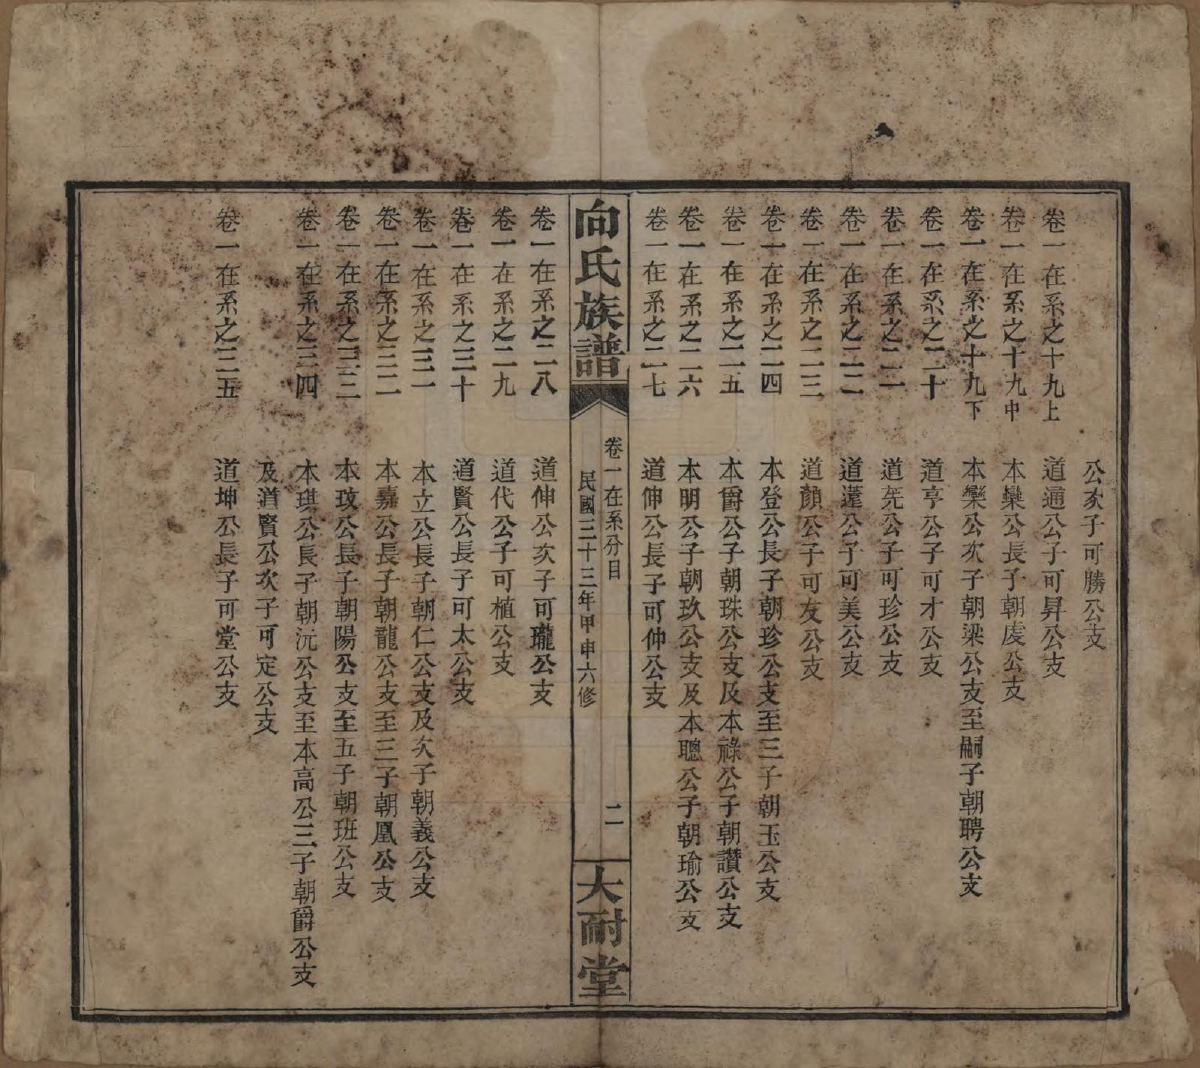 公次子可勝公支
卷一在系之十九上　道通公子可昇公支
卷一在系之十九中　本欒公長子朝虔公支
卷一在系之十九下　本欒公次子朝梁公支至嗣子朝聘公支
卷一在系之二十　道亨公子可才公支
卷一在系之二一　道先公子可珍公支
卷一在系之二二　道蓮公子可美公支
卷一在系之二三　道顏公子可友公支
卷一在系之二四　本登公長子朝珍公支至三子朝玉公支
卷一在系之二五　本爵公子朝珠公支及本祿公子朝讚公支
卷一在系之二六　本明公子朝玖公支及本聰公子朝瑜公支
卷一在系之二七　道伸公長子可仲公支
向氏族譜
卷一在系分目　二
民國三十三年甲申六修
大耐堂
卷一在系之二八　道伸公次子可瓏公支
卷一在系之二九　道代公子可植公支
卷一在系之三十　道賢公長子可太公支
卷一在系之三一　本立公長子朝仁公支及次子朝義公支
卷一在系之三二　本嘉公長子朝龍公支至三子朝凰公支
卷一在系之三三　本玫公長子朝陽公支至五子朝班公支
卷一在系之三四　本琪公長子朝沅公支至本高公三子朝爵公支
及道賢公次子可定公支
卷一在系之三五　道坤公長子可堂公支